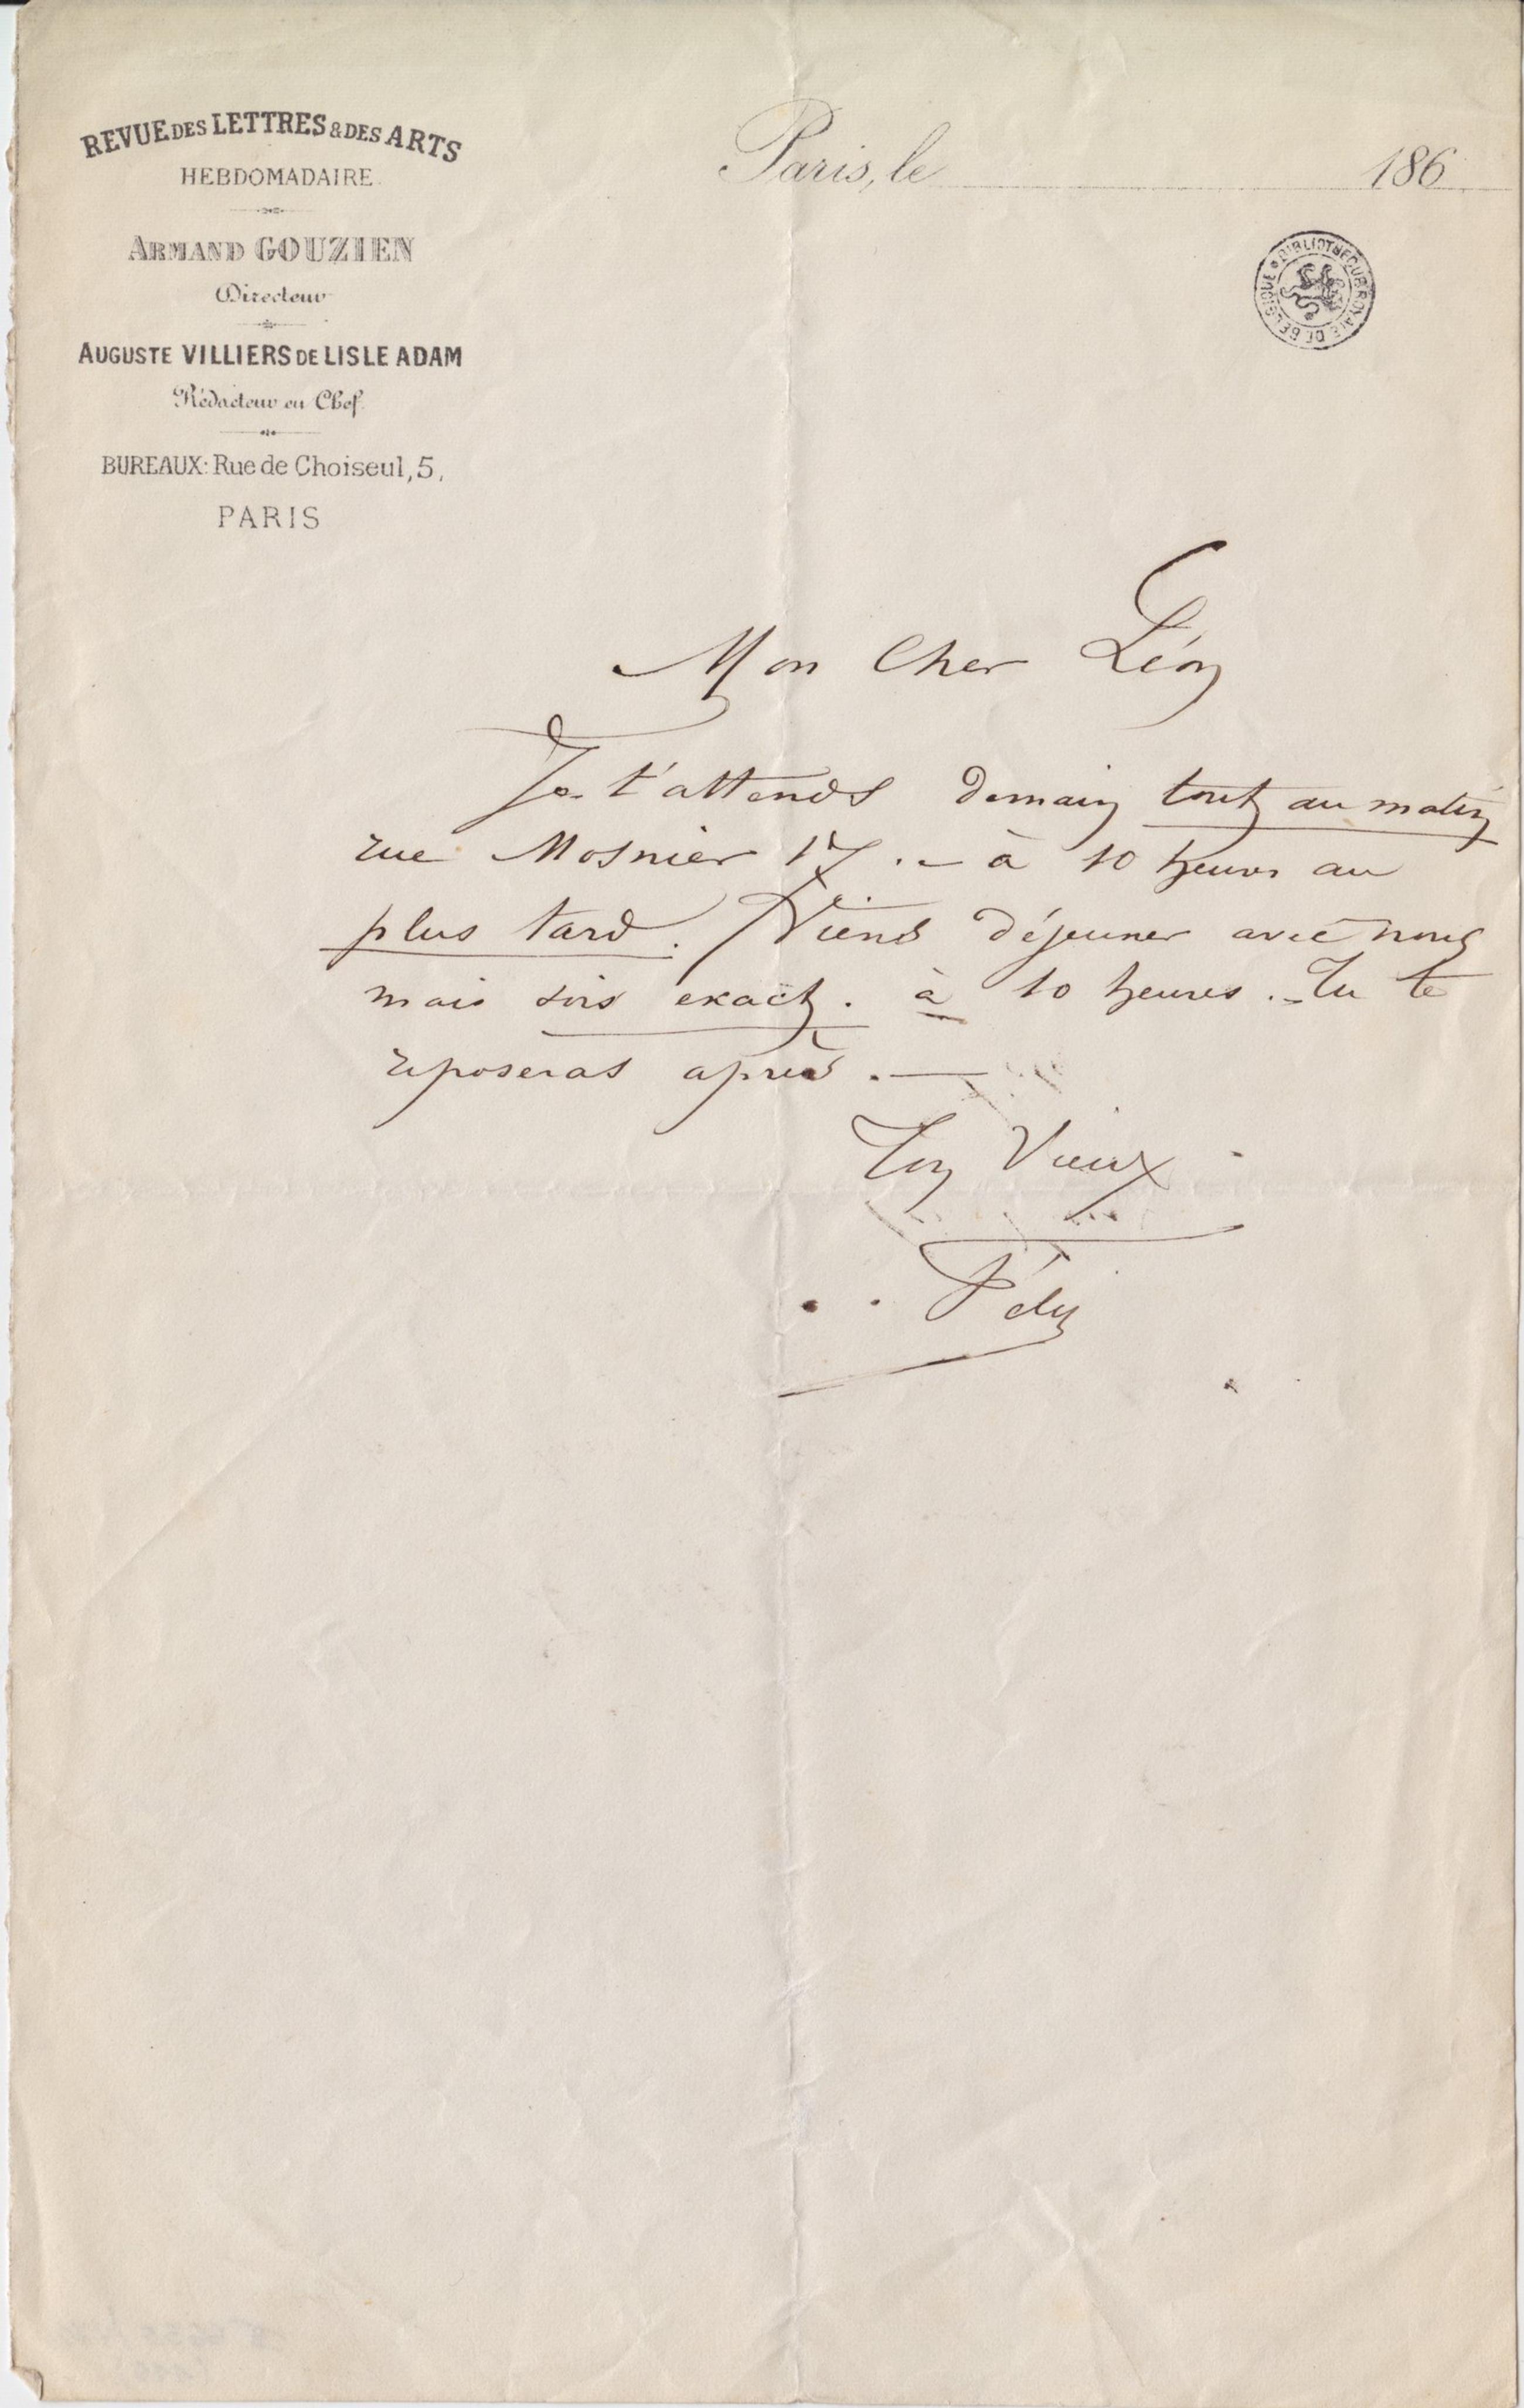 REVUE DES LETTRES & DES ARTS
HEBDOMADAIRE.
ARMAND GOUZIEN
Directeur
AUGUSTE VILLIERS DE LISLE ADAM
Rédacteur en Chef.
BUREAUX: Rue de Choiseul, 5,
PARIS
Paris, le 186
BIBLIOTHEQUE ROYALE DE BELGIQUE
Mon Cher Léon
Je t'attends demain tout au matin
rue Mosnier 17. – à 10 heures au
plus tard. Viens déjeuner avec nous
mais sois exact. à 10 heures. – Tu te
reposeras après. —
Ton Vieux
Fély